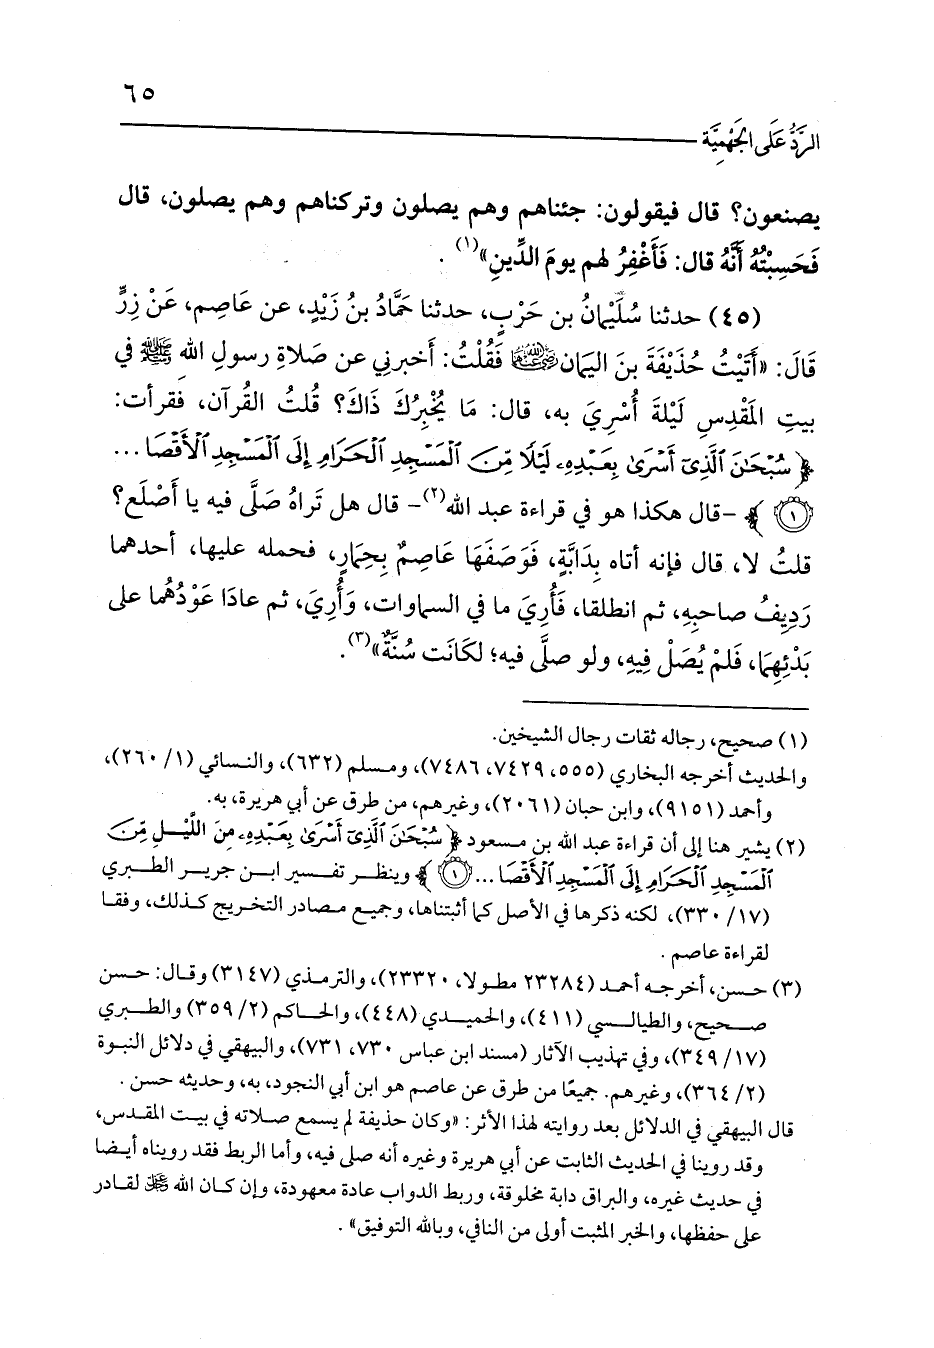 ٦٥
الرَّدُّ عَلَى الجَهْمِيَّة
يصنعون؟ قال فيقولون: جئناهم وهم يصلون وتركناهم وهم يصلون، قال
فَحَسِبْتُهُ أَنَّهُ قال: فَأَغْفِرُ لهم يومَ الدِّينِ»(١) .
(٤٥) حدثنا سُلَيْمانُ بن حَرْبٍ، حدثنا حَمَّادُ بنُ زَيْدٍ، عن عَاصِم، عَنْ زِرٍّ
قَالَ: «أَتَيْتُ حُذَيْفَةَ بنَ اليَمان رضي الله عنه فَقُلْتُ: أخبرني عن صَلاةِ رسولِ الله ﷺ في
بيتِ المَقْدِسِ لَيْلَةَ أُسْرِيَ به، قال: مَا يُخْبِرُكَ ذَاكَ؟ قُلتُ القُرآن، فَقرأت:
﴿ سُبْحَٰنَ ٱلَّذِىٓ أَسْرَىٰ بِعَبْدِهِۦ لَيْلًا مِّنَ ٱلْمَسْجِدِ ٱلْحَرَامِ إِلَى ٱلْمَسْجِدِ ٱلْأَقْصَا ...
۝١ ﴾ -قال هكذا هو في قراءة عبد الله(٢)- قال هل تَراهُ صَلَّى فيه يا أَصْلَع؟
قلتُ لا، قال فإنه أتاه بِدَابَّةٍ، فَوَصَفَهَا عَاصِمٌ بِحِمَارٍ، فحمله عليها، أحدهما
رَدِيفُ صاحبِهِ، ثم انطلقا، فَأُرِيَ ما في السماوات، وَأُرِيَ، ثم عادَا عَوْدُهُما على
بَدْئِهِمَا، فَلَمْ يُصَلْ فِيهِ، ولو صلَّى فيه؛ لكَانَت سُنَّةٌ»(٣).
(١) صحيح، رجاله ثقات رجال الشيخين.
والحديث أخرجه البخاري (٥٥٥، ٧٤٢٩، ٧٤٨٦)، ومسلم (٦٣٢)، والنسائي (١/ ٢٦٠)،
وأحمد (٩١٥١)، وابن حبان (٢٠٦١)، وغيرهم، من طرق عن أبي هريرة، به.
(٢) يشير هنا إلى أن قراءة عبد الله بن مسعود ﴿ سُبْحَٰنَ ٱلَّذِىٓ أَسْرَىٰ بِعَبْدِهِۦ مِنَ اللَّيْلِ مِّنَ
ٱلْمَسْجِدِ ٱلْحَرَامِ إِلَى ٱلْمَسْجِدِ ٱلْأَقْصَا ...۝١ ﴾ وينظر تفسير ابن جرير الطبري
(١٧/ ٣٣٠)، لكنه ذكرها في الأصل كما أثبتناها، وجميع مصادر التخريج كذلك، وفقا
لقراءة عاصم .
(٣) حسن، أخرجه أحمد (٢٣٢٨٤ مطولا، ٢٣٣٢٠)، والترمذي (٣١٤٧) وقال: حسن
صحيح، والطيالسي (٤١١)، والحميدي (٤٤٨)، والحاكم (٢/ ٣٥٩) والطبري
(١٧/ ٣٤٩)، وفي تهذيب الآثار (مسند ابن عباس ٧٣٠، ٧٣١)، والبيهقي في دلائل النبوة
(٢/ ٣٦٤)، وغيرهم. جميعًا من طرق عن عاصم هو ابن أبي النجود، به، وحديثه حسن .
قال البيهقي في الدلائل بعد روايته لهذا الأثر: «وكان حذيفة لم يسمع صلاته في بيت المقدس،
وقد روينا في الحديث الثابت عن أبي هريرة وغيره أنه صلى فيه، وأما الربط فقد رويناه أيضا
في حديث غيره، والبراق دابة مخلوقة، وربط الدواب عادة معهودة، وإن كان الله ﷻ لقادر
على حفظها، والخبر المثبت أولى من النافي، وبالله التوفيق» .